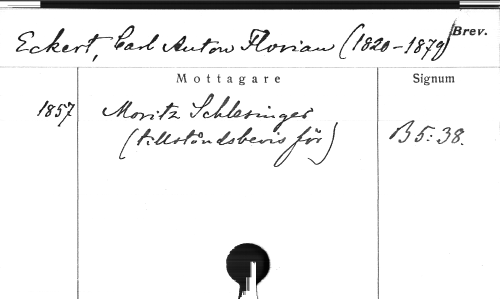 Eckert, Carl Anton Florian (1820-1879) Brev.
Mottagare Signum
1857 Moritz Schlesinger
(tillståndsbevis för) B 5:38.